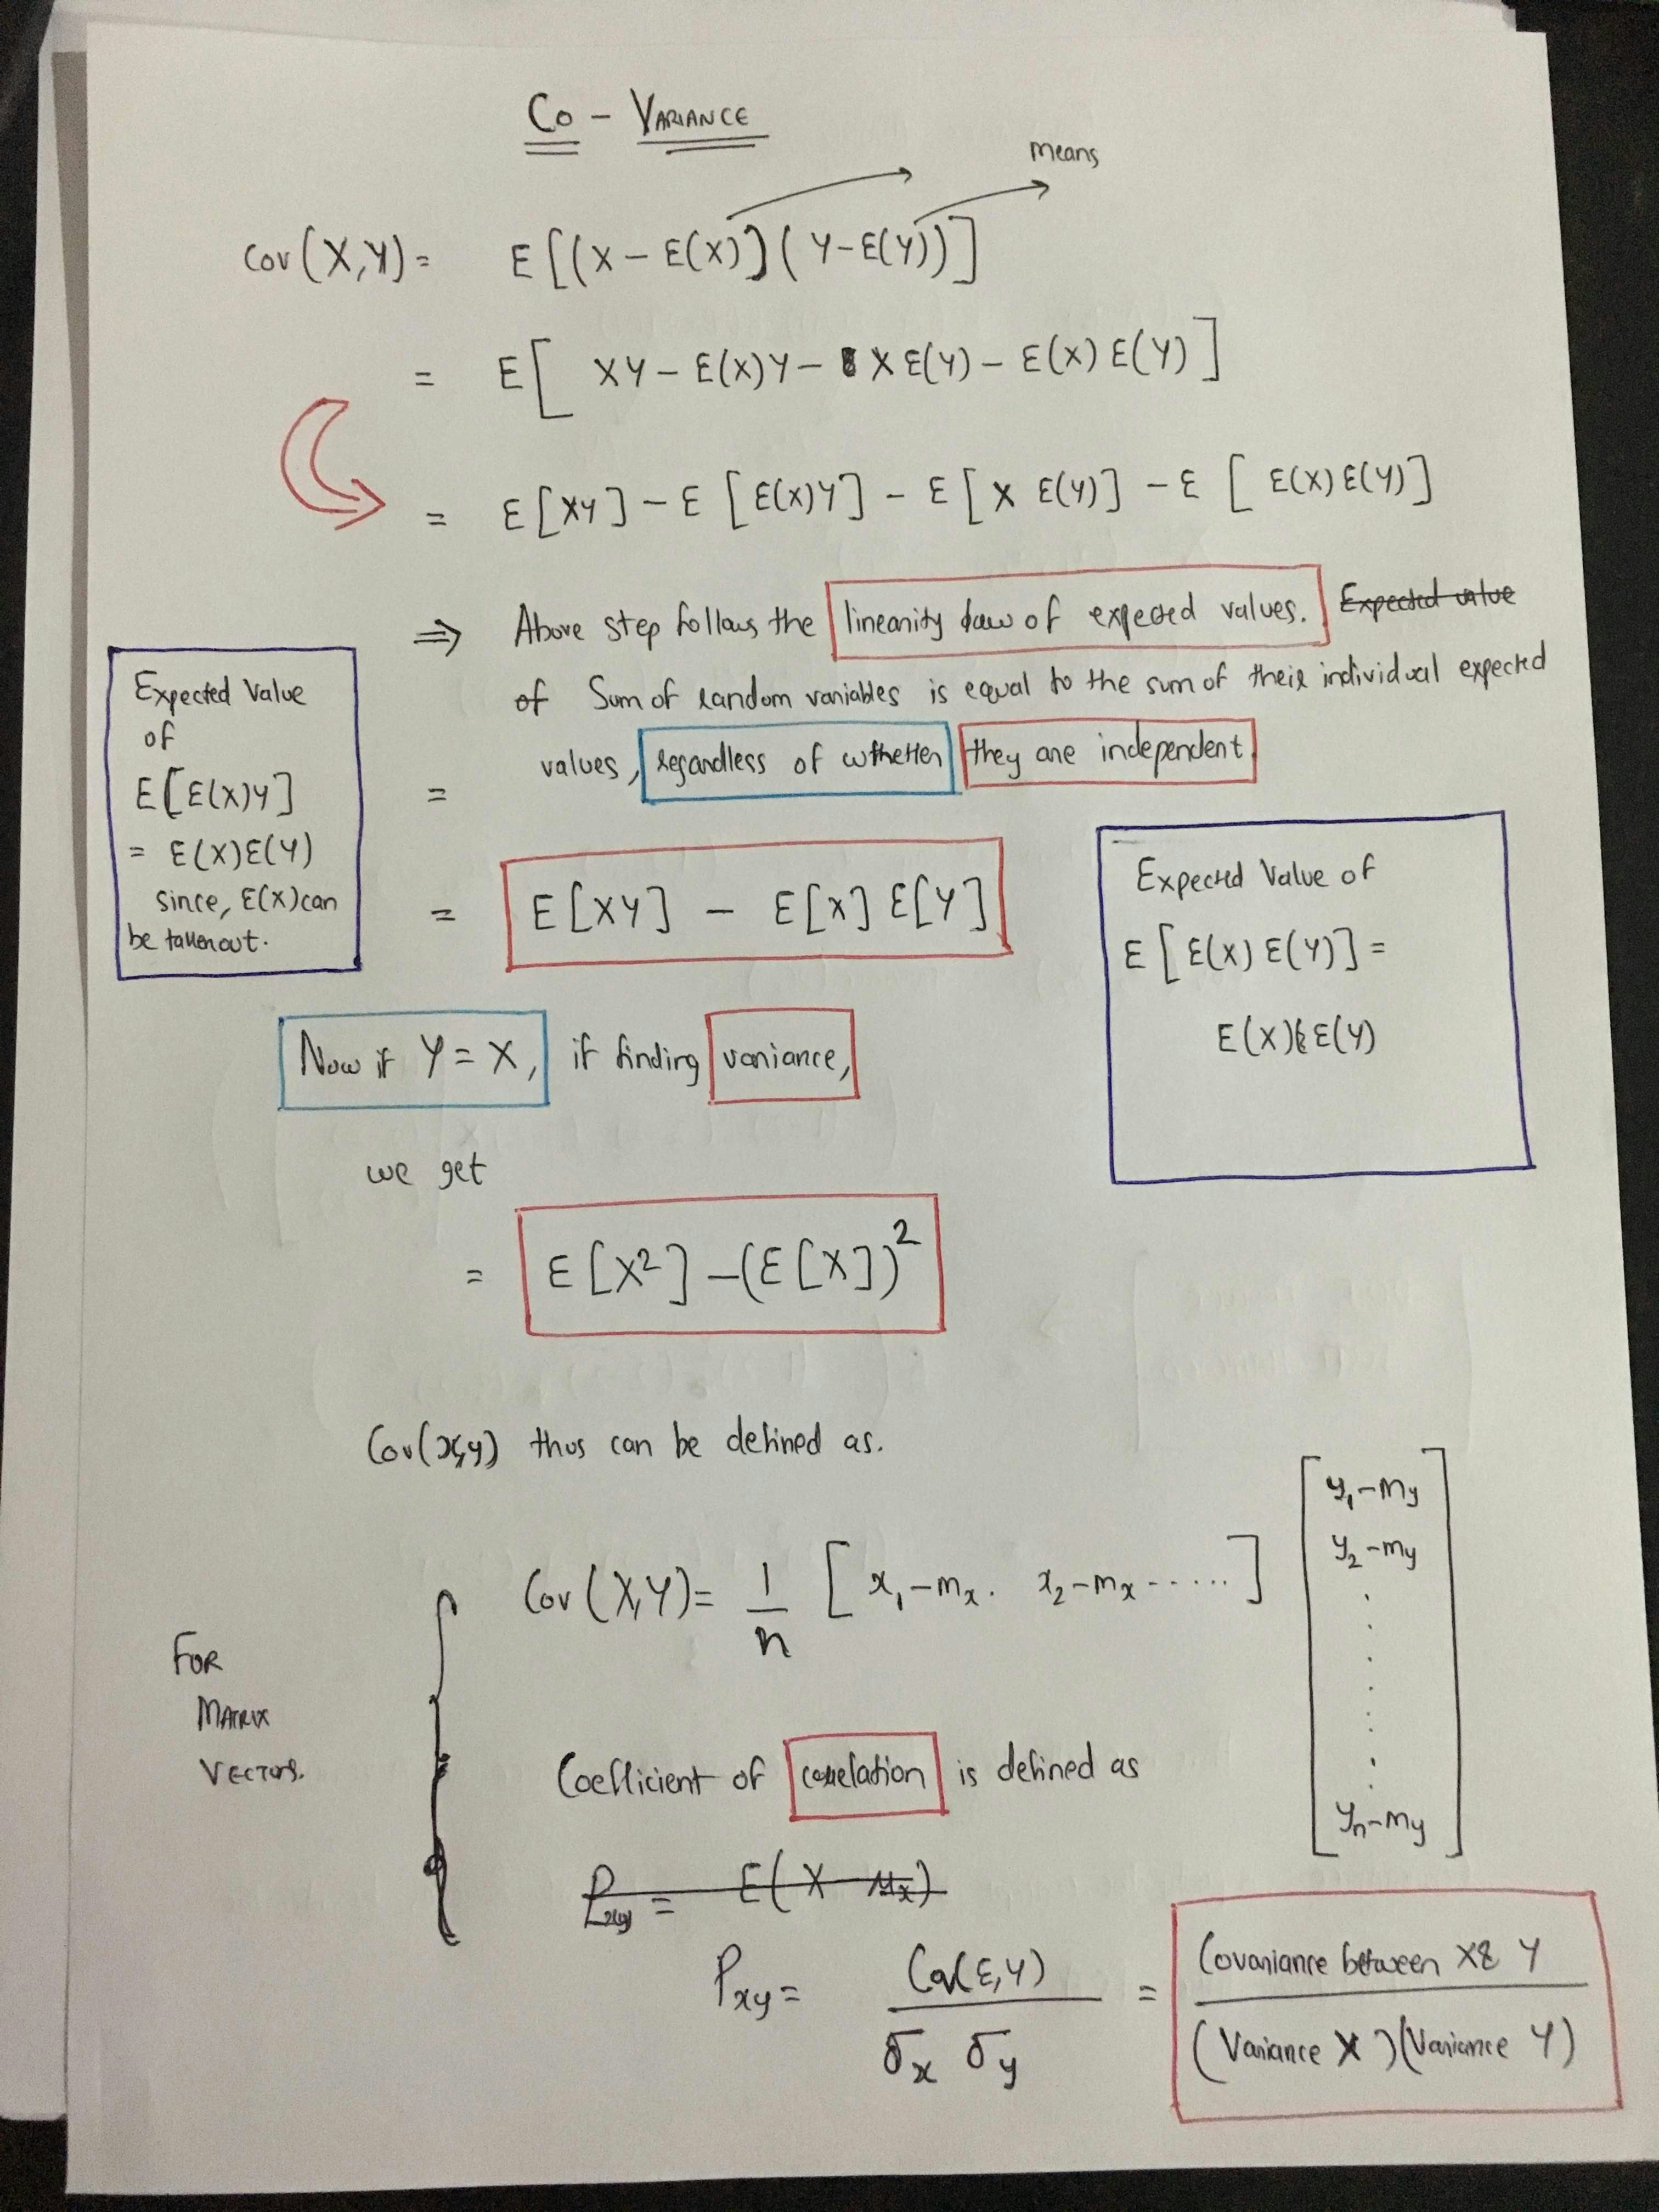 Co - VARIANCE
means
Cov(X,Y) = E[(X - E(X))(Y-E(Y))]
= E[ XY - E(X)Y - X E(Y) - E(X) E(Y) ]
= E[XY] - E[E(X)Y] - E[X E(Y)] - E[ E(X) E(Y)]
⇒ Above step follows the linearity law of expected values. Expected value
of Sum of random variables is equal to the sum of their individual expected
values, regardless of whether they are independent.
=
Expected Value
of
E[E(X)Y]
= E(X)E(Y)
since, E(X) can
be taken out.
= E[XY] - E[X] E[Y]
Expected Value of
E[E(X) E(Y)] =
E(X) E(Y)
Now if Y = X, if finding variance,
we get
= E[X²] - (E[X])²
Cov(x,y) thus can be defined as.
FOR
MATRIX
VECTORS.
Cov(X,Y) = 1/n [x₁-mₓ. x₂-mₓ ......]
y₁-my
y₂-my
yn-my
Coefficient of correlation is defined as
Pxy = E(X - μx)
Pxy = Cov(E,Y) / σx σy = Covariance between X & Y / (Variance X)(Variance Y)